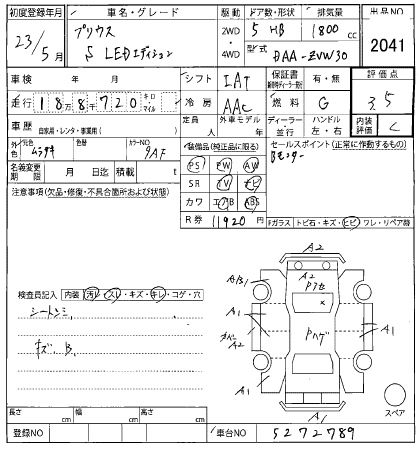 初度登録年月 車名・グレード 駆動 ドア数・形状 排気量 出品NO
23/5月 プリウス S LEDエディション 2WD・4WD 5 HB 1800cc 2041
型式 DAA-ZVW30
車検 年 月 シフト IAT 保証書 有・無 評価点
走行 18万8千720 キロ・マイル 冷房 AAC 燃料 G 3.5
車歴 自家用・レンタ・事業用( ) 定員 人 外車モデル 年 ディーラー・並行 ハンドル 左・右 内装評価 C
外色 元色 ムラサキ 色替 カラーNO 9AF 装備品(純正品に限る) セールスポイント(正常に動作するもの)
名義変更期限 月 日迄 積載 t PS PW AW
SR TV ナビ
カワ エアB ABS
R券 11920円
注意事項(欠品・修復・不具合箇所および状態)
Fガラス トビ石・キズ・ヒビ・ワレ・リペア跡
検査員記入 内装 汚レ・スレ・キズ・キレ・コゲ・穴
シートシミ,
キズ. B,
A2
A2
A/B1
A1
A2
A1
A1
A1
A1
スペア
長さ cm 幅 cm 高さ cm
登録NO 車台NO 5272789